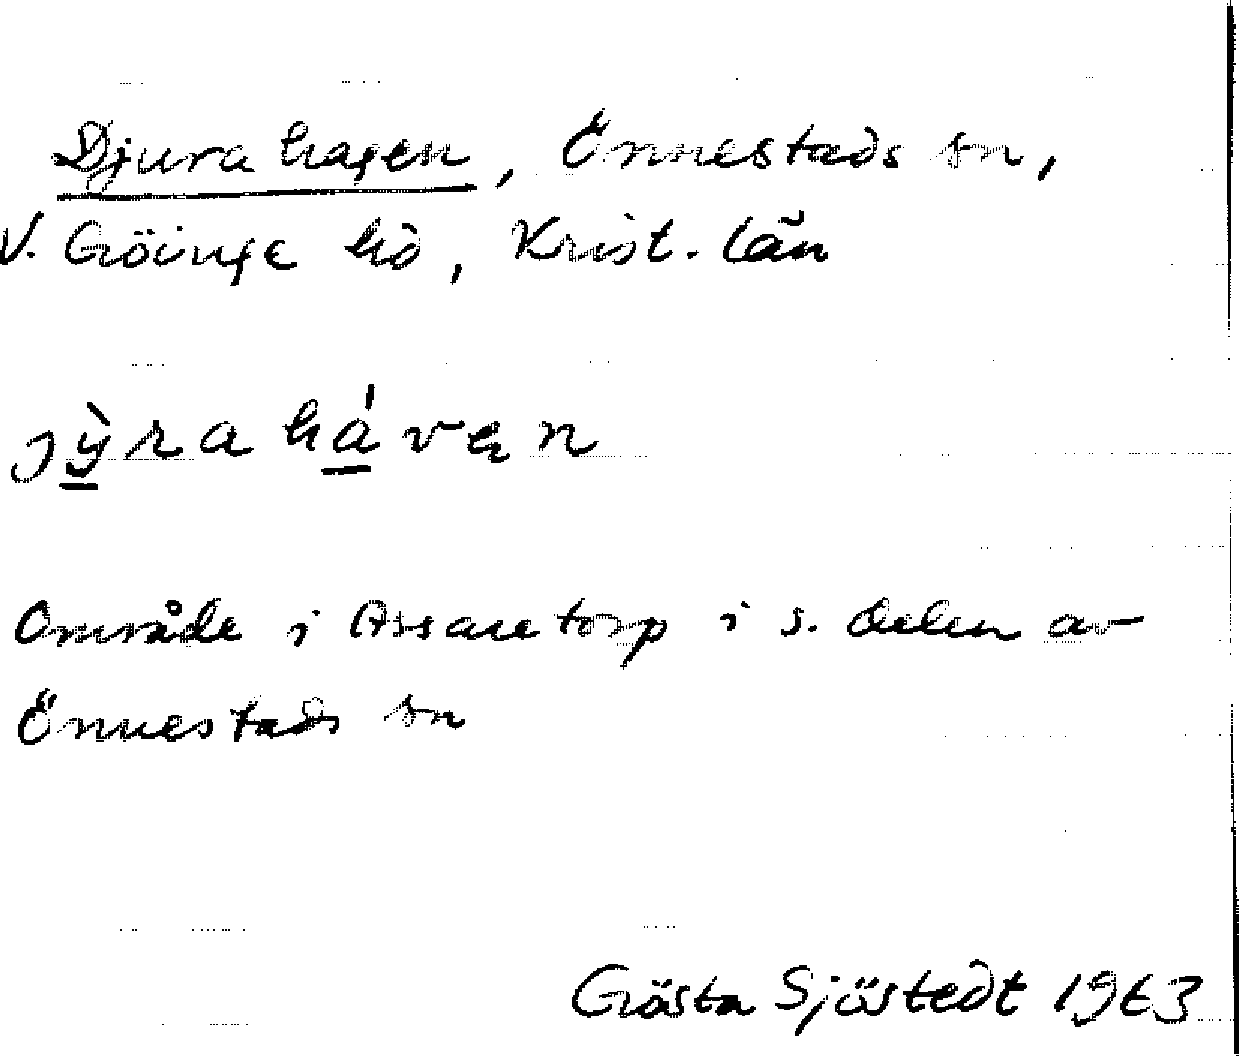 Djurahagen, Önnestads sn,
V. Göinge hd, Krist. län
jỳ̱rahá̱vęn
Område i Assaretorp i s. delen av
Önnestads sn
Gösta Sjöstedt 1963